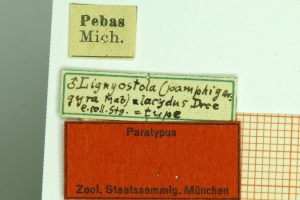 Pebas
Mich.
Lignyostola (pamphigar-
gyra Mab) = lacydus Drce
e. coll. Stg. = type
Paratypus
Zool. Staatssammlg. München